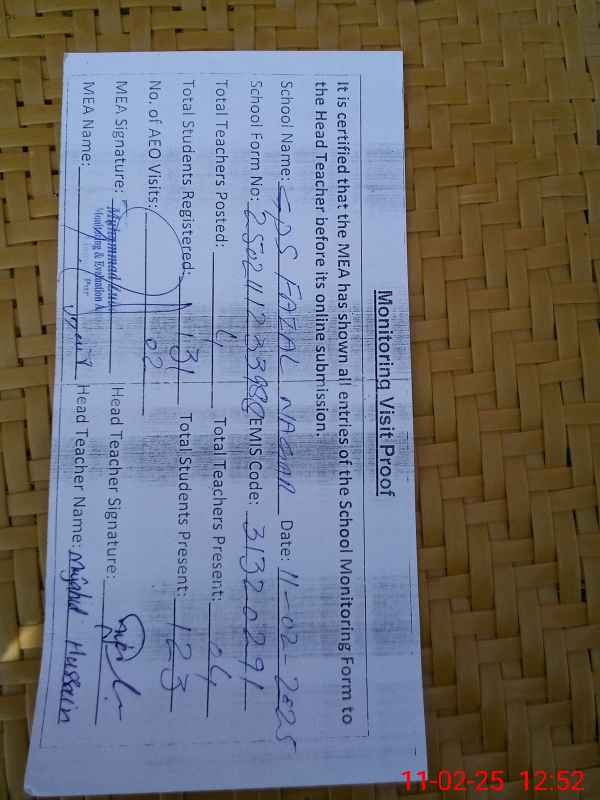 Monitoring Visit Proof
It is certified that the MEA has shown all entries of the School Monitoring Form to
the Head Teacher before its online submission.
School Name: GPS FAZAL NAGAR Date: 11-02-2025
School Form No: EMIS Code: 31320291
Total Teachers Posted: 4 Total Teachers Present: 04
Total Students Registered: 131 Total Students Present: 123
No. of AEO Visits: 02
MEA Signature: Muhammad Head Teacher Signature:
Monitoring & Evaluation A
MEA Name: Head Teacher Name: Mujahid Hussain
11-02-25 12:52